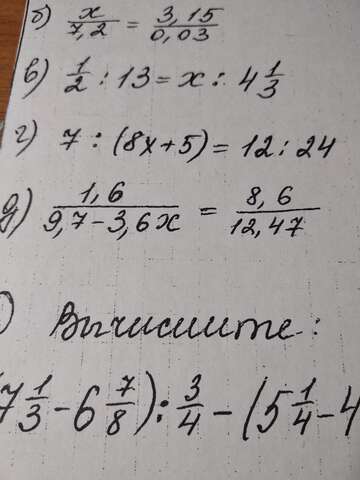 б) x/7,2 = 3,15/0,03
в) 1/2 : 13 = x : 4 1/3
г) 7 : (8x+5) = 12 : 24
д) 1,6/(9,7-3,6x) = 8,6/12,47
) Вычислите:
(7 1/3 - 6 7/8) : 3/4 - (5 1/4 - 4